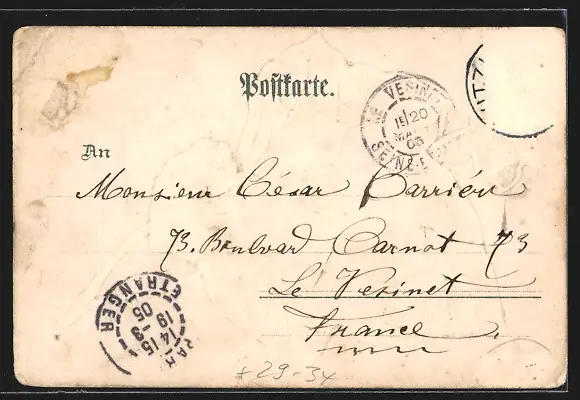 Postkarte.
LE VESINET
15/20
MAR
05
SEINE-ET
ITZ
An
Monsieur César Barrién
73. Boulvard Carnot 73
Le Vesinet
France
ETRANGER
14 15
19 -3
05
*29-34